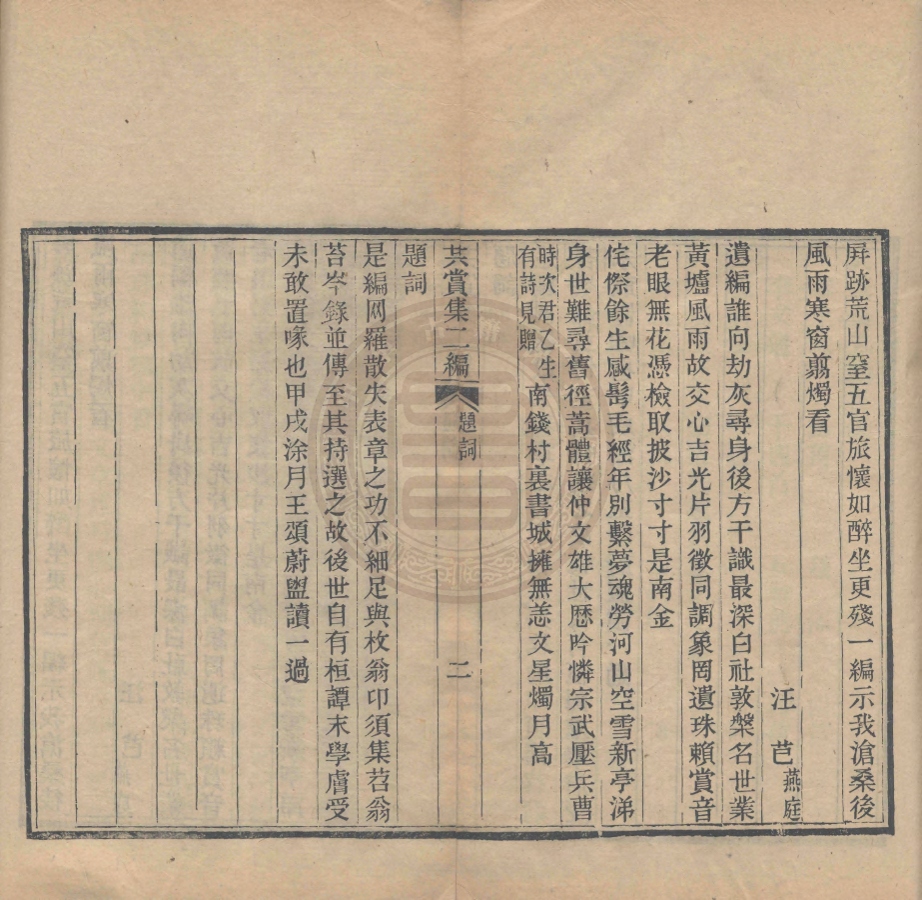 屛跡荒山窒五官旅懷如醉坐更殘一編示我滄桑後
風雨寒窗翦燭看
汪芑燕庭
遺編誰向劫灰尋身後方干識最深白社敦槃名世業
黃壚風雨故交心吉光片羽徵同調象罔遺珠賴賞音
老眼無花憑檢取披沙寸寸是南金
侘傺餘生感髩毛經年別繫夢魂勞河山空雪新亭涕
身世難尋舊徑蒿體讓仲文雄大厯吟憐宗武壓兵曹
時次君乙生
有詩見贈
南錢村裏書城擁無恙文星燭月高
共賞集二編
題詞
二
題詞
是編网羅散失表章之功不細足與枚翁卬須集苕翁
苔岑錄並傳至其持選之故後世自有桓譚末學膚受
未敢置喙也甲戌涂月王頌蔚盥讀一過